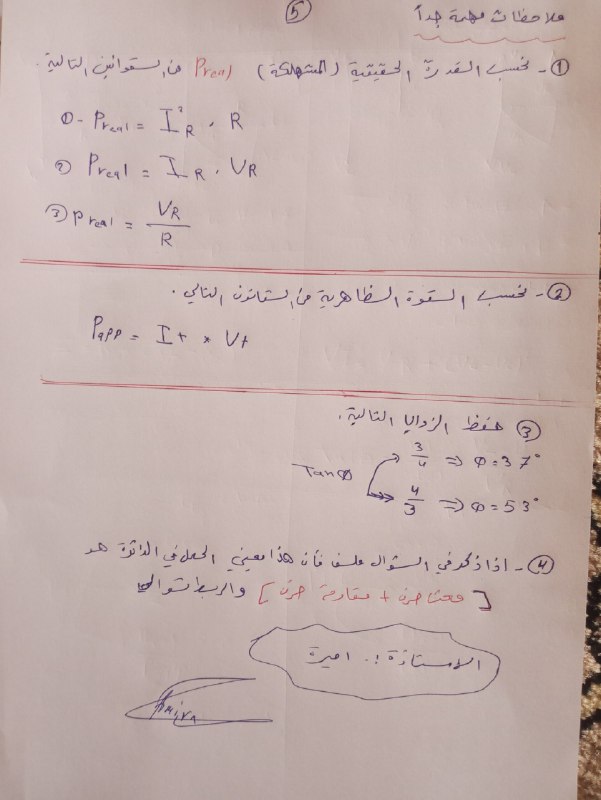 5
ملاحظات مهمة جداً
①- نحسب القدرة الحقيقية (المستهلكة) Preal من القوانين التالية.
①- Preal = I²R . R
② Preal = IR . VR
③ Preal = VR / R
②- نحسب القوة الظاهرية من القانون التالي.
Papp = It * Vt
③ حفظ الزوايا التالية.
Tanφ 3/4 ⇒ φ = 37°
4/3 ⇒ φ = 53°
④- اذا ذكر في السؤال ملف فأن هذا يعني الحمل في الدائرة هو
[محث صرف + مقاومة صرف] والربط توالي
الاستاذة :. اميرة
Amira